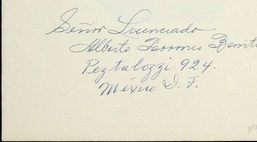 Señor Licenciado
Alberto Terrones Benít
Peztalozzi 924.
México D. F.